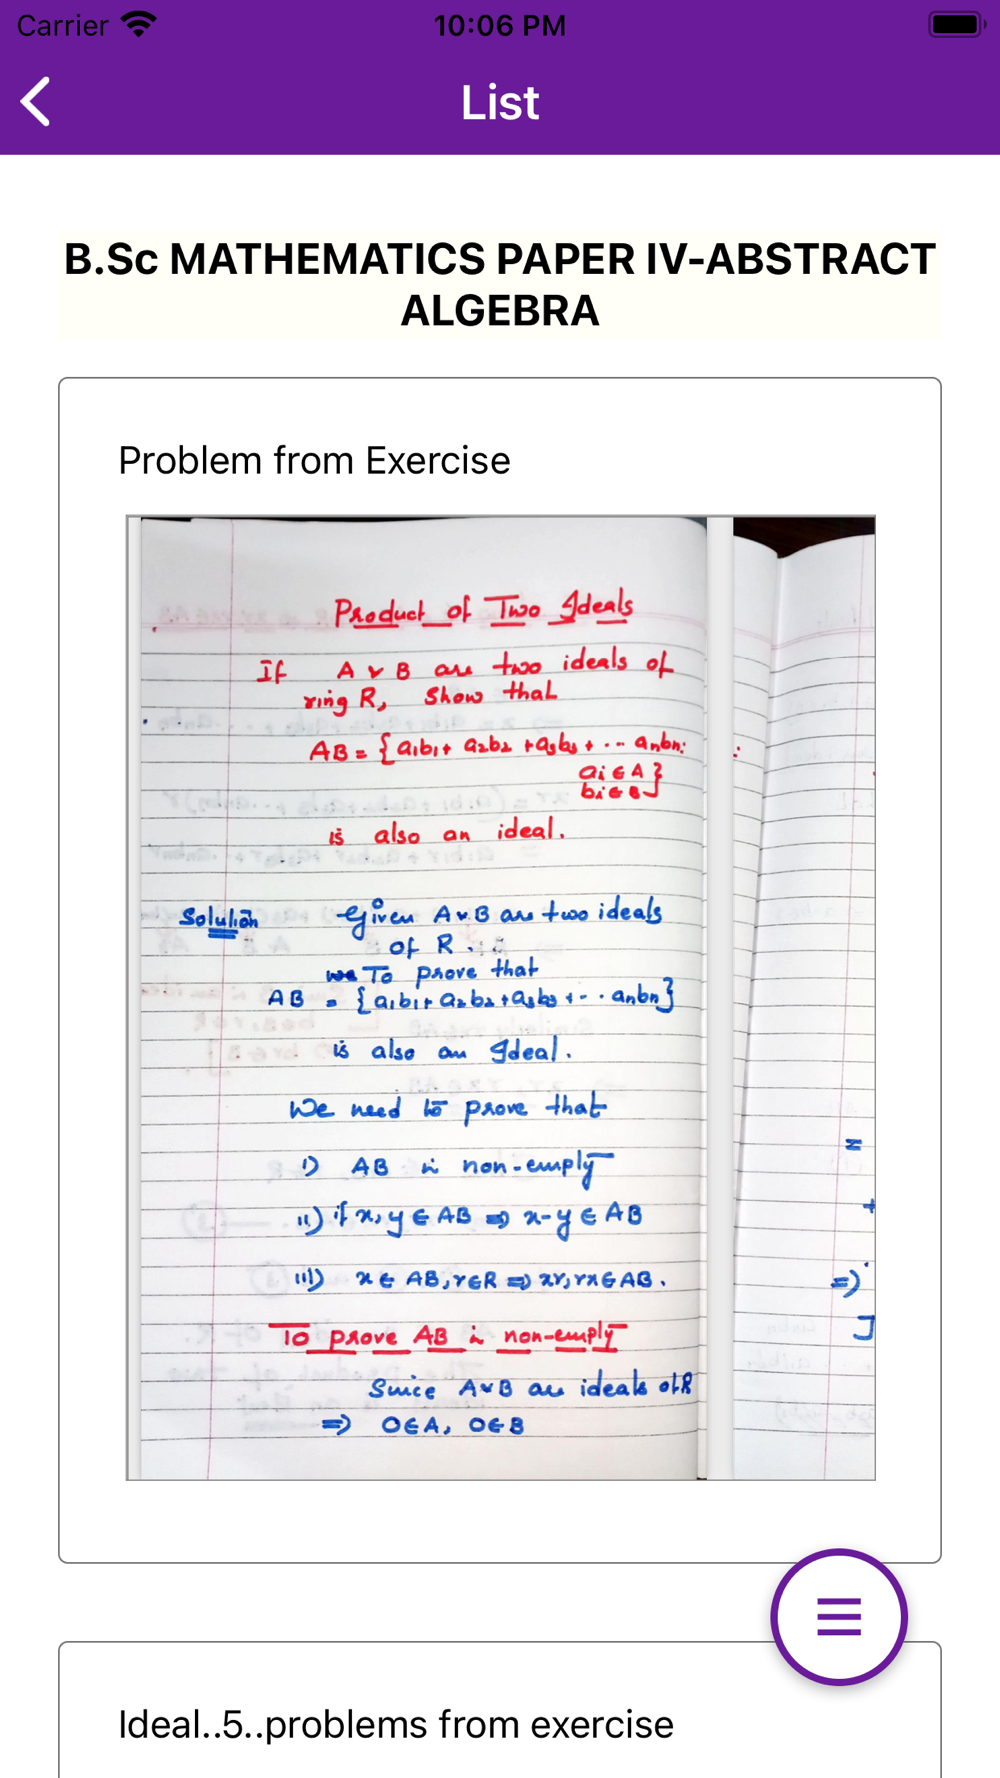 Carrier
10:06 PM
List
B.Sc MATHEMATICS PAPER IV-ABSTRACT
ALGEBRA
Problem from Exercise
Product of Two Ideals
If A & B are two ideals of
ring R, Show that
AB = {a₁b₁ + a₂b₂ + a₃b₃ + ... anbn:
ai ∈ A
bi ∈ B}
is also an ideal.
Solution Given A & B are two ideals
of R.
To prove that
AB = {a₁b₁ + a₂b₂ + a₃b₃ + .. anbn}
is also an Ideal.
We need to prove that
i) AB is non-empty
ii) if x, y ∈ AB ⇒ x-y ∈ AB
iii) x ∈ AB, r ∈ R ⇒ xr, rx ∈ AB.
To prove AB is non-empty
Since A & B are ideals of R
⇒ 0 ∈ A, 0 ∈ B
Ideal..5..problems from exercise